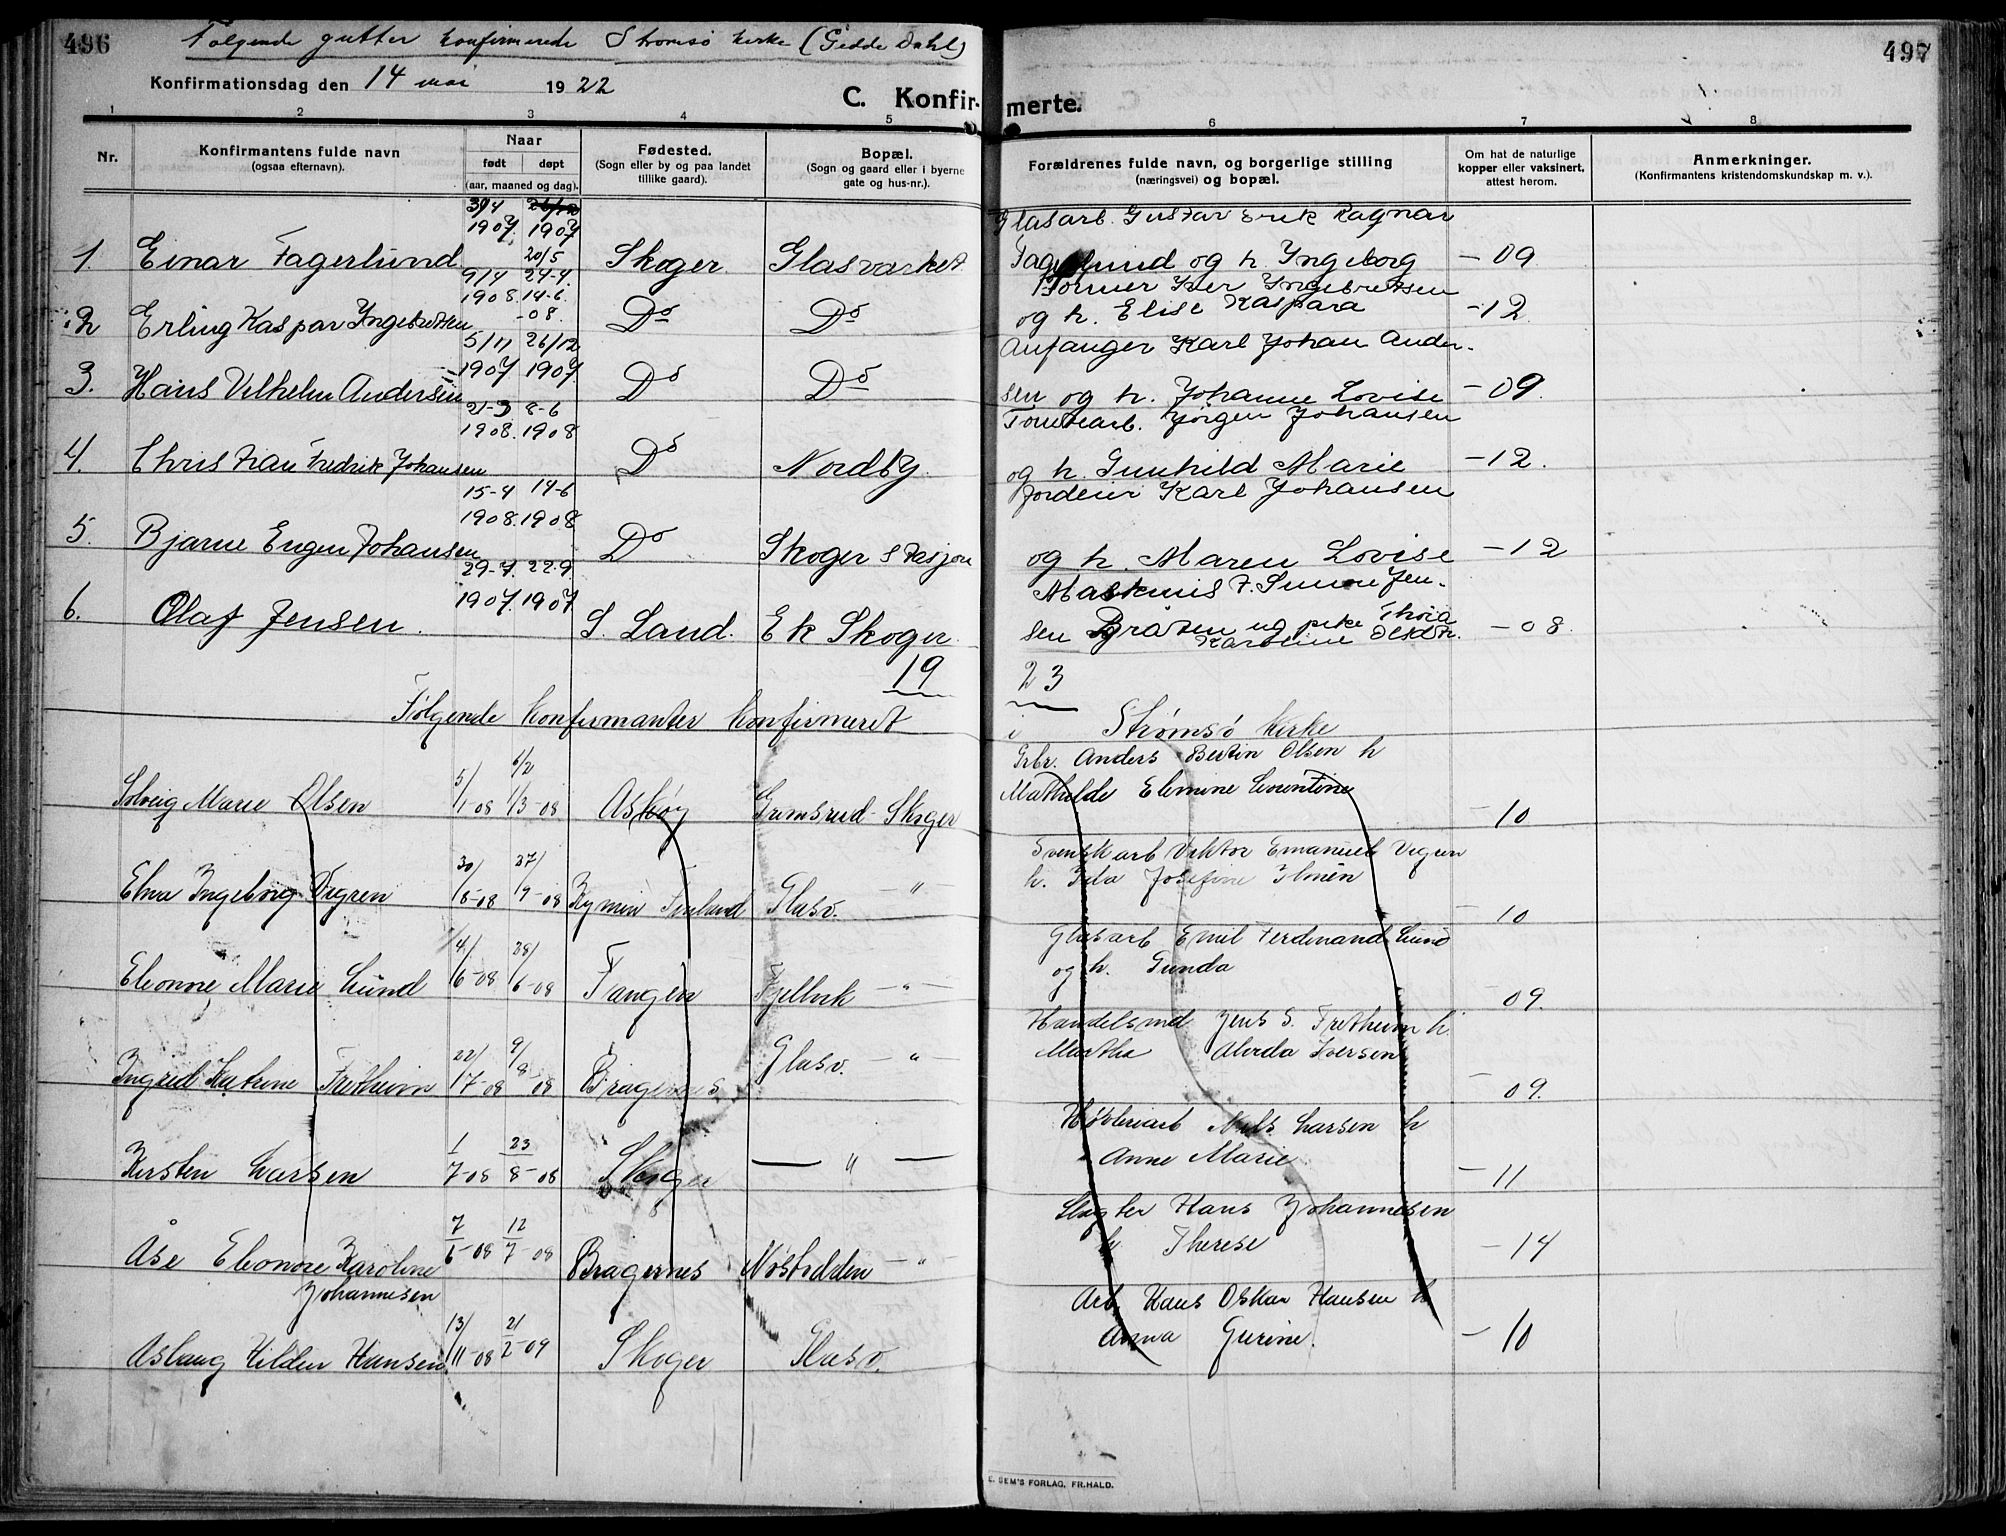 496
Følgende gutter konfirmerede Strømsø kirke (Gedde Dahl)
Konfirmationsdag den 14 mai 1922
C. Konfir-
1 2 3 4 5
Nr.
Konfirmantens fulde navn
(ogsaa efternavn).
Naar
født døpt
(aar, maaned og dag).
Fødested.
(Sogn eller by og paa landet
tillike gaard).
Bopæl.
(Sogn og gaard eller i byerne
gate og hus-nr.).
3/4 26/12
1907. 1907
20/5
1. Einar Fagerlund Skoger. Glasværket
9/4 24-4.
1908. 14-6.
-08.
2 Erling Kaspar Ingebretsen Do Do
5/11 26/12
1907 1907.
3. Hans Vilhelm Andersen Do Do
21-3 8-6
1908. 1908
4. Christian Fredrik Johansen Do Nordby.
15-4 14-6
1908. 1908
5. Bjarne Eugen Johansen Do Skoger Stasjon
29-7. 22-9
1907. 1907
6. Olaf Jensen. S. Land. Ek Skoger.
19
Følgende konfirmanter konfirmeret
Solveig Marie Olsen 5/1-08 6/2 1/3-08 Askøy Grimsrud - Skoger
Elna Ingeborg Vigren 30/5-08 27/9-08 Kymin Finland Glasv. - " -
Eleonore Marie Lund 14/6-08 28/6-08 Tangen Fjellvik - " -
Ingrid Katrine Fretheim 22/17-08 9/8 08 Bragernes Glasv. - " -
Kirsten Larsen 1/7-08 23/8-08 Skoger — " —
Åse Eleonore Karoline 7/6-08 12/7-08 Bragernes Nøstodden - " -
Johannesen
Aslaug Hildur Hansen 13/11-08 21/2-09 Skoger Glasv.
497
merte.
6 7 8
Forældrenes fulde navn, og borgerlige stilling
(næringsvei) og bopæl.
Om hat de naturlige
kopper eller vaksinert,
attest herom.
Anmerkninger.
(Konfirmantens kristendomskundskap m. v.).
Glasarb. Gustav Erik Ragnar
Fagerlund og h. Ingeborg - 09
Former Iver Ingebretsen
og h. Elise Kaspara -12
Anfanger Karl Johan Ander-
sen og h. Johanne Lovise - 09.
Tomtearb. Jørgen Johansen
og h. Gunhild Marie -12.
Jordeier Karl Johansen
og h. Maren Lovise -12
Maskinis t. Simon Jen-
sen Bråten og pike Thora
Karoline Olsdtr. - 08.
23
i Strømsø kirke
Grbr. Anders Bertin Olsen h
Mathilde Elemine Laurentine - 10
Svensk arb Viktor Emanuel Vigren
h. Ida Josefine Ilmén - 10
Glasarb Emil Ferdinand Lund
og h. Gunda - 09.
Handelsmd Jens S. Fretheim h.
Martha Alvida Iversen - 09.
Høvleriarb Nils Larsen h
Anne Marie - 11
Slagter Hans Johannesen
h. Therese - 14
Arb Hans Oskar Hansen h
Anna Gurine. - 10
E. SEM'S FORLAG, FR.HALD.